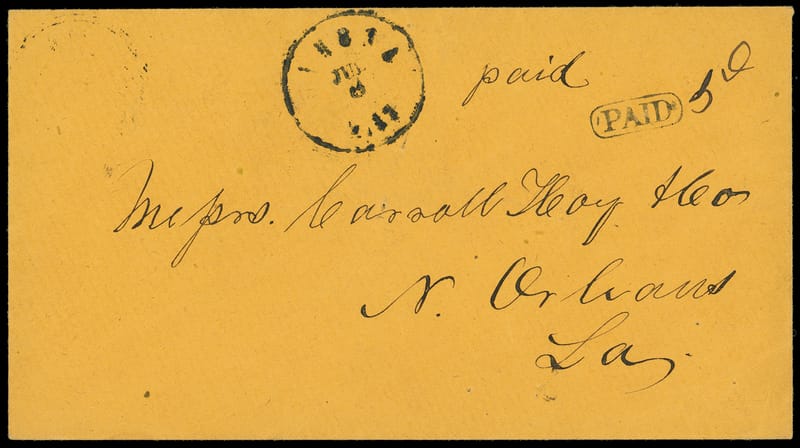 paid
PAID 5
Messrs. Carroll Hoy & Co
N. Orleans
La.